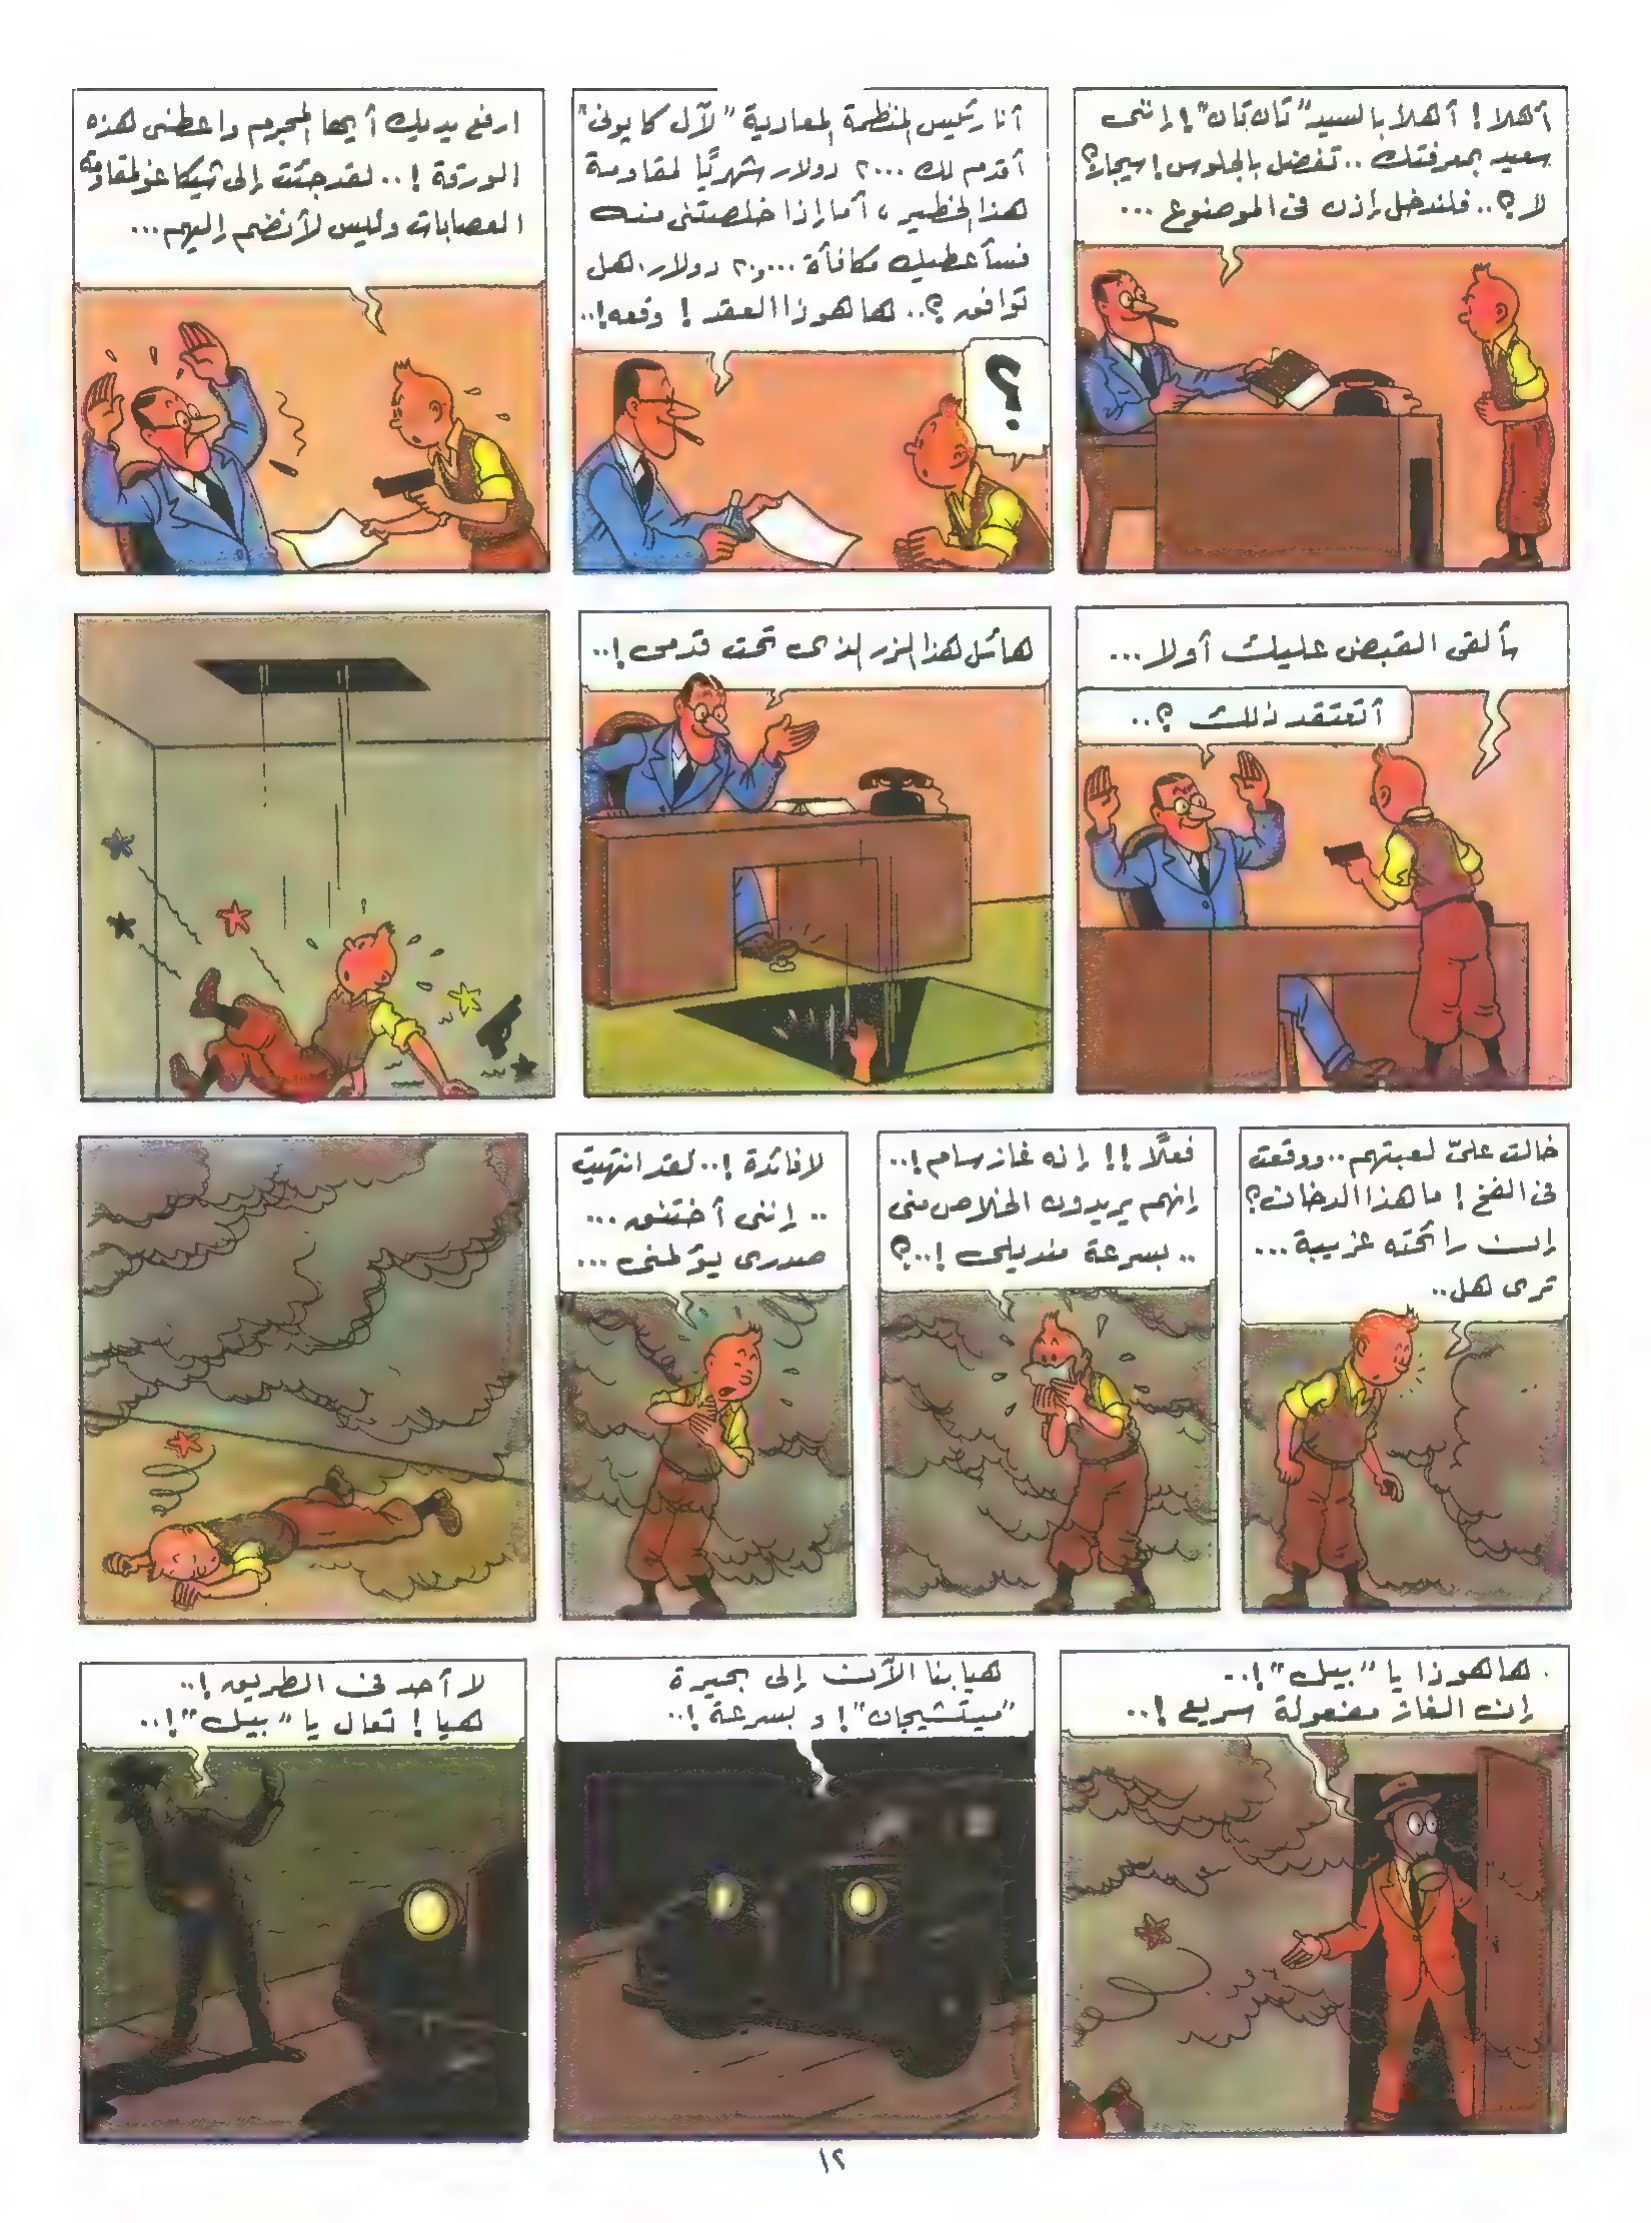 أهلا ! أهلا بالسيد "تان تان" ! إننى
سعيد بمعرفتك .. تفضل بالجلوس ! سيجار؟
لا ؟.. فلندخل إذن فى الموضوع ...
أنا رئيس المنظمة المعادية "لآل كابونى"
أقدم لك ٢٠٠٠ دولار شهريًا لمقاومة
هذا الخطير ، أما إذا خلصتنى منه
فسأعطيك مكافأة ٢٠,٠٠٠ دولار. هل
توافق ؟.. ها هو ذا العقد ! وقعه !..
؟
ارفع يديك أيها المجرم واعطنى هذه
الورقة ! .. لقد جئت إلى شيكاغو لمقاومة
العصابات وليس لأنضم إليهم ...
سألقى القبض عليك أولا ...
أتعتقد ذلك ؟..
هائل هذا الزر الذى تحت قدمى !..
خالت علىّ لعبتهم .. ووقعت
فى الفخ ! ما هذا الدخان ؟
إن رائحته غريبة ...
ترى هل ..
فعلًا !! إنه غاز سام !..
إنهم يريدون الخلاص منى
.. بسرعة منديلى !..؟
لا فائدة !.. لقد انتهيت
.. إننى أختنق ...
صدرى يؤلمنى ...
ها هو ذا يا "بيل" !..
إن الغاز مفعوله سريع !..
هيا بنا الآن إلى بحيرة
"ميتشيجان" ! وبسرعة !..
لا أحد فى الطريق !..
هيا ! تعال يا "بيل" !..
١٢